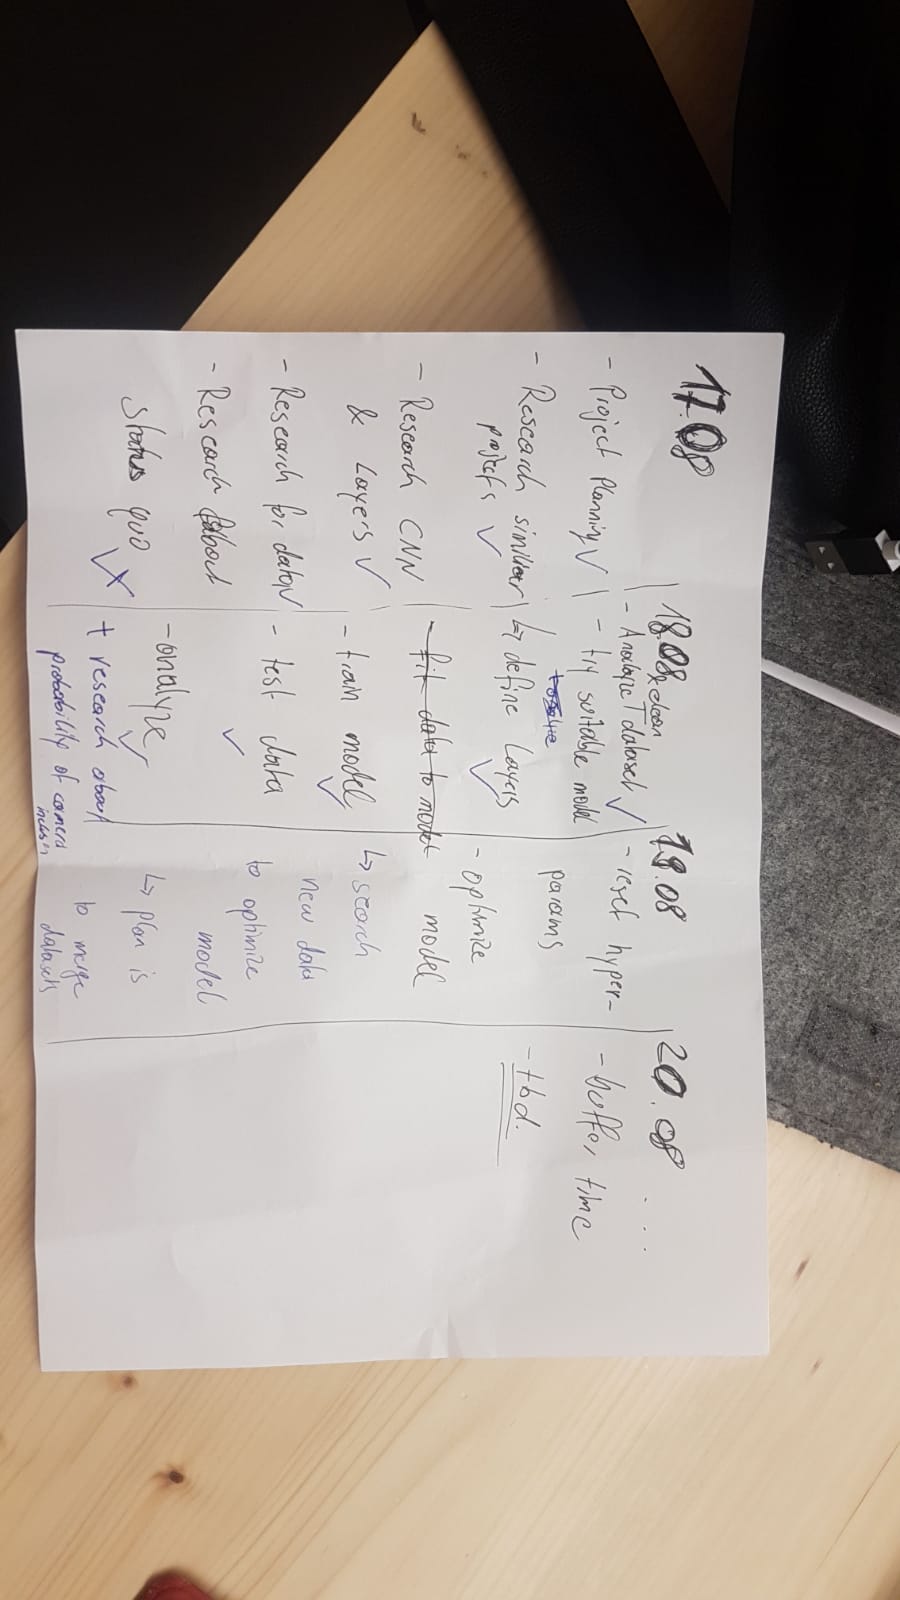 17.08
- Project Planning ✓
- Research similar
projects ✓
- Research CNN
& Layers ✓
- Research for data ✓
- Research about
status quo ✓ x
18.08
& clean
- Analyze dataset ✓
- try suitable model
↳ define Layers ✓
- fit data to model
- train model ✓
- test data ✓
- analyze ✓
+ research about
probability of camera
19.08
- reset hyper-
params
- optimize
model
↳ search
new data
to optimize
model
↳ plan is
to merge
datasets
20.08 ...
- buffer time
- tbd.